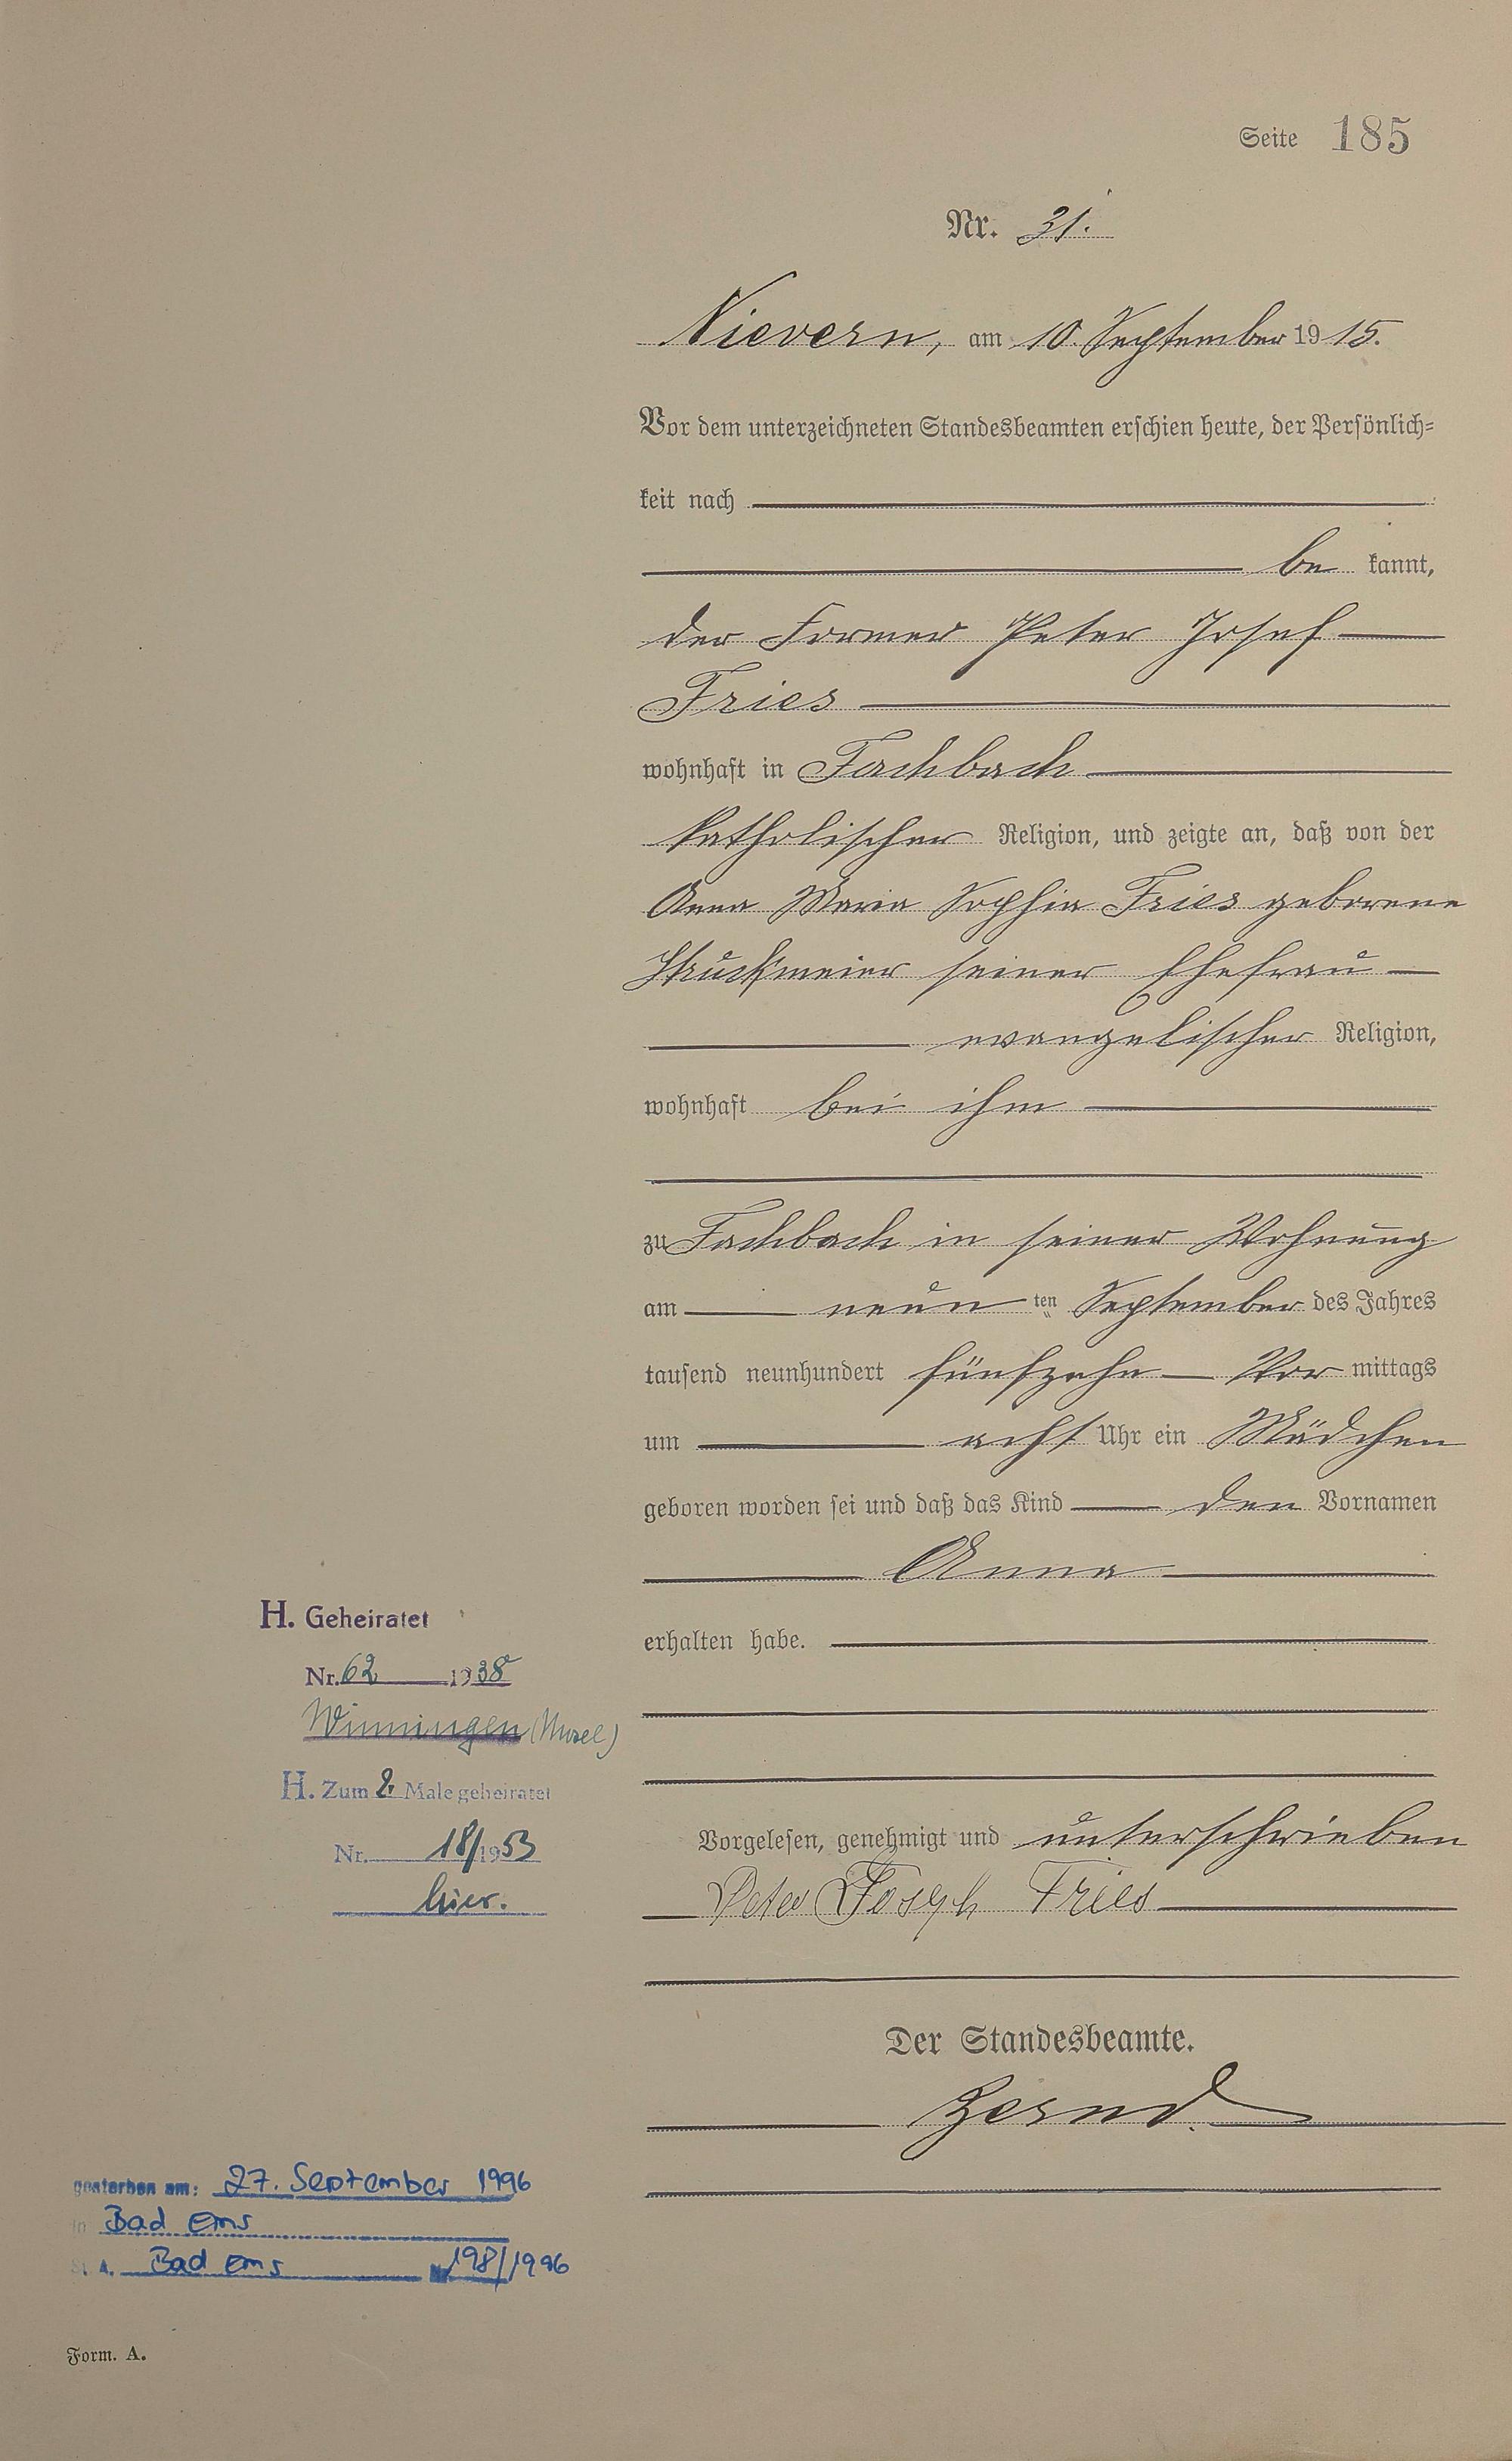 Seite 185
Nr. 31.
Nievern, am 10. September 1915.
Vor dem unterzeichneten Standesbeamten erschien heute, der Persönlich=
keit nach
be kannt,
der Former Peter Josef
Fries
wohnhaft in Fachbach
katholischer Religion, und zeigte an, daß von der
Anna Maria Sophia Fries geborene
Struckmeier seiner Ehefrau
evangelischer Religion,
wohnhaft bei ihm
zu Fachbach in seiner Wohnung
am neun ten September des Jahres
tausend neunhundert fünfzehn Vor mittags
um acht Uhr ein Mädchen
geboren worden sei und daß das Kind den Vornamen
Anna
erhalten habe.
Vorgelesen, genehmigt und unterschrieben
Peter Joseph Fries
Der Standesbeamte.
H. Geheiratet
Nr. 62 1938
Winningen (Mosel)
H. Zum 2. Male geheiratet
Nr. 18/1953
hier.
gestorben am: 27. September 1996
in Bad Ems
St. A. Bad Ems Nr. 198/1996
Form. A.